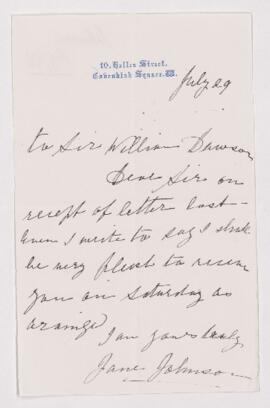 10. Holles Street.
Cavendish Square. W.
July 29
to Sir William Dawson
Dear Sir on
recept of letter last
I write to say I shall
be very pleast to receve
you on Saturday as
arainged
I am yours truly
Jane Johnson